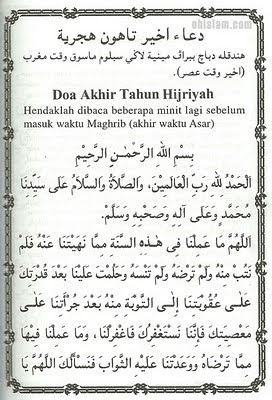 ohislam.com
دعاء اخير تاهون هجرية
هندقله دباچ ببراڤ مينية لاݢي سبلوم ماسوق وقت مغرب
(اخير وقت عصر).
Doa Akhir Tahun Hijriyah
Hendaklah dibaca beberapa minit lagi sebelum
masuk waktu Maghrib (akhir waktu Asar)
بِسْمِ اللهِ الرَّحْمٰنِ الرَّحِيْمِ
اَلْحَمْدُ لِلهِ رَبِّ الْعَالَمِيْنَ، وَالصَّلَاةُ وَالسَّلَامُ عَلَى سَيِّدِنَا
مُحَمَّدٍ وَعَلَى آلِهِ وَصَحْبِهِ وَسَلَّمْ.
اَللّٰهُمَّ مَا عَمِلْنَا فِى هٰذِهِ السَّنَةِ مِمَّا نَهَيْتَنَا عَنْهُ فَلَمْ
نَتُبْ مِنْهُ وَلَمْ تَرْضَهُ وَلَمْ تَنْسَهُ وَحَلُمْتَ عَلَيْنَا بَعْدَ قُدْرَتِكَ
عَلَى عُقُوْبَتِنَا إِلَى التَّوْبَةِ مِنْهُ بَعْدَ جُرْأَتِنَا عَلَى
مَعْصِيَتِكَ فَإِنَّنَا نَسْتَغْفِرُكَ فَاغْفِرْلَنَا، وَمَا عَمِلْنَا فِيْهَا
مِمَّا تَرْضَاهُ وَوَعَدْتَنَا عَلَيْهِ الثَّوَابَ فَنَسْأَلُكَ اللّٰهُمَّ يَا